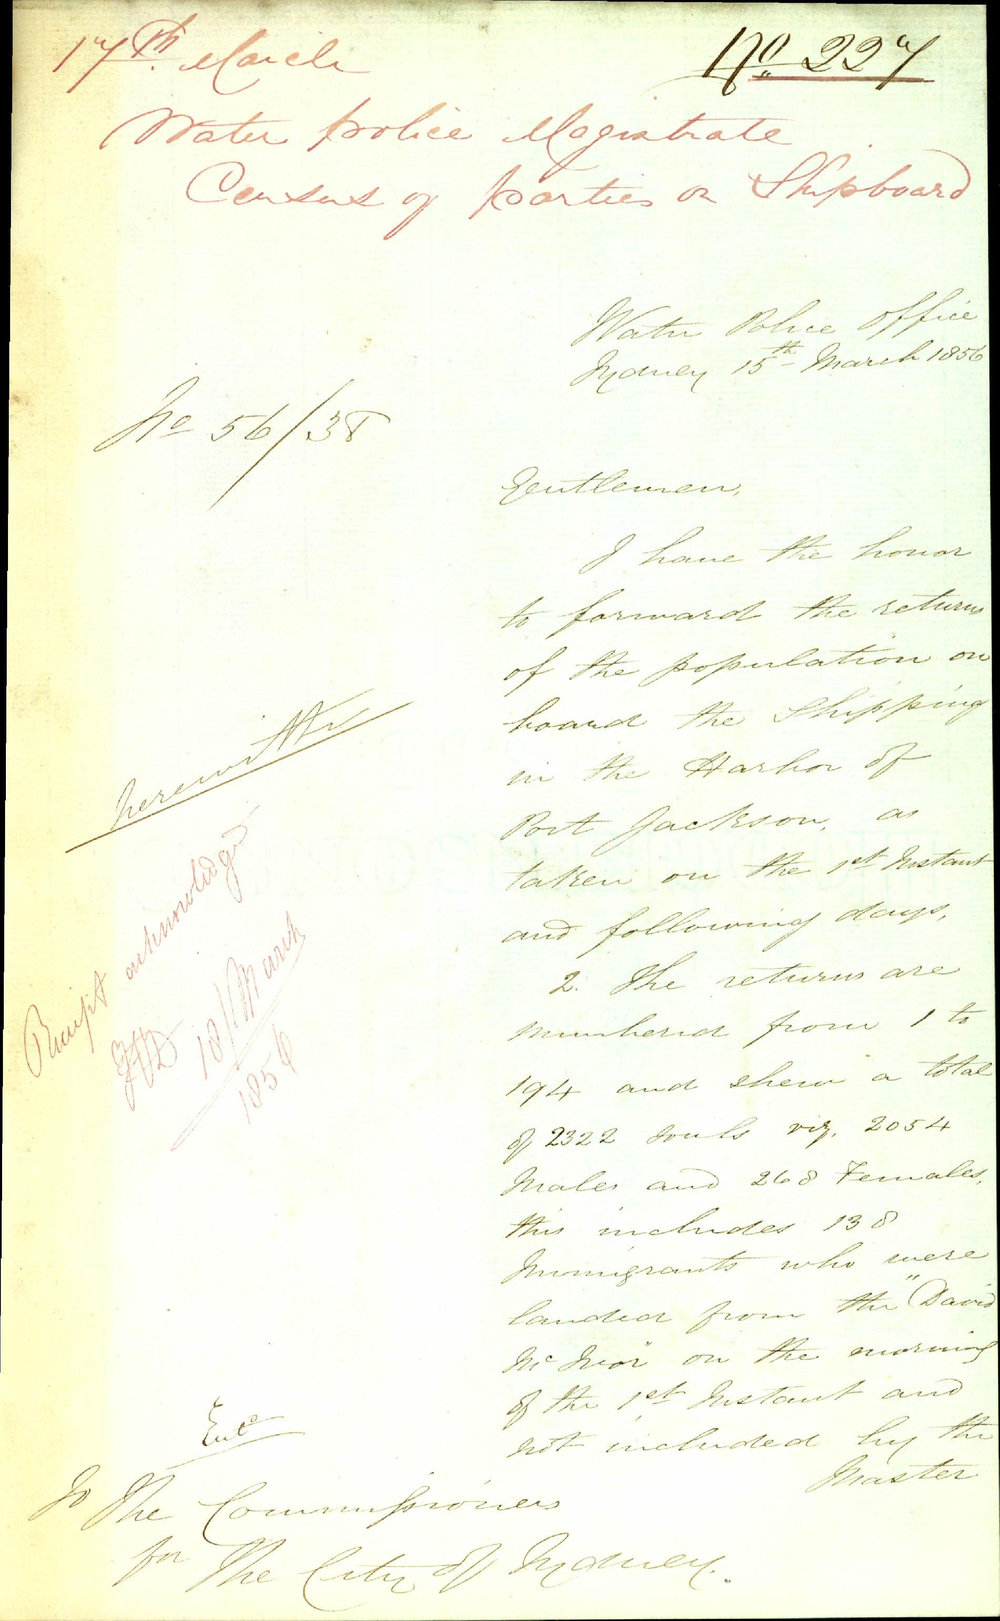 17th. March
No 227
Water police Magistrate
Census of parties on Shipboard
Water Police Office
Sydney 15th March 1856
No 56/38
Gentlemen,
I have the honor
to forward the returns
of the population on
board the Shipping
in the Harbor of
Port Jackson, as
taken on the 1st Instant
and following days,
2. The returns are
numbered from 1 to
194 and shew a total
of 2322 souls viz. 2054
Males and 268 Females,
this includes 138
Immigrants who were
landed from the "David
McIvor" on the morning
of the 1st Instant and
not included by the
Master
herewith
Receipt acknowledged
18/March
1856
Encl
To The Commissioners
for The City of Sydney.